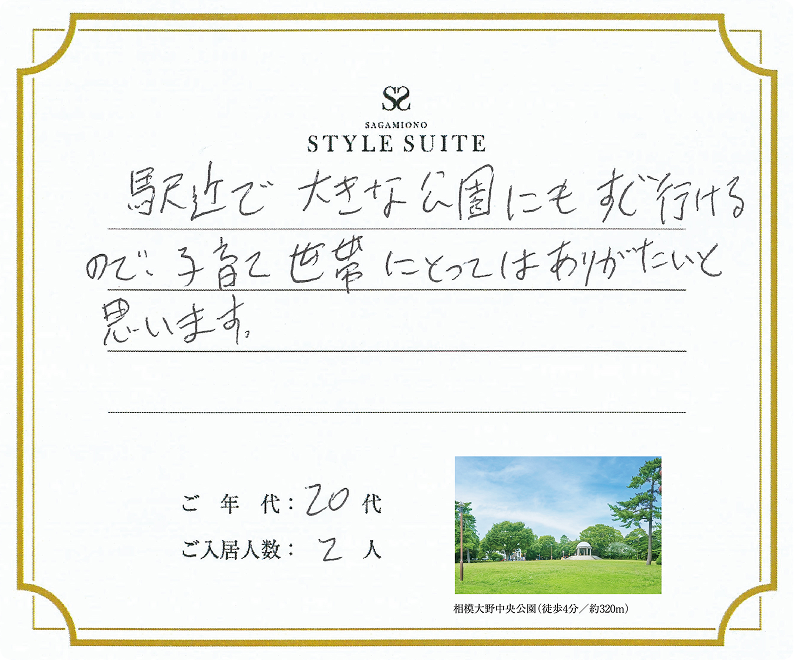 SS
SAGAMIONO
STYLE SUITE
駅近で 大きな公園にも すぐ行ける
ので、子育て世帯にとってはありがたいと
思います。
ご年代：20代
ご入居人数：2人
相模大野中央公園（徒歩4分／約320m）